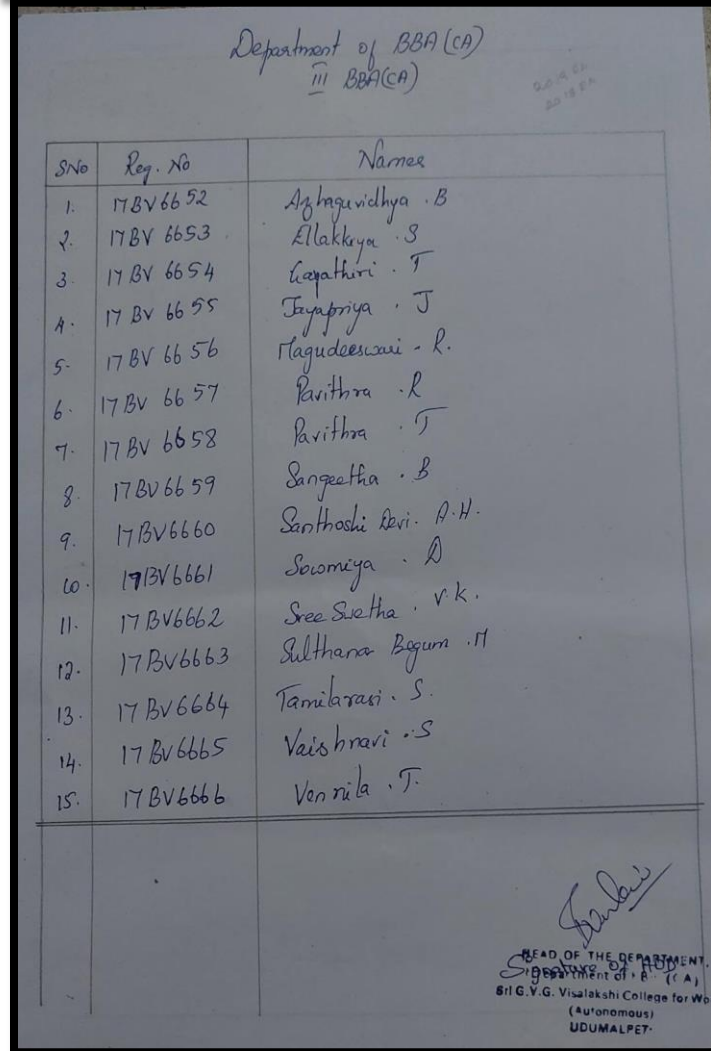 Department of BBA(CA)
III BBA(CA)
SNo Reg. No Names
1. 17BV6652 Azhaguvidhya . B
2. 17BV 6653 Ellakkiya . S
3. 17 BV 6654 Gayathiri . T
4. 17 BV 6655 Jayapriya . J
5. 17 BV 6656 Magudeeswari - R.
6. 17 BV 6657 Pavithra . R
7. 17 BV 6658 Pavithra . T
8. 17BV6659 Sangeetha . B
9. 17BV6660 Santhoshi Devi. A.H.
10. 17BV6661 Sowmiya . D
11. 17BV6662 Sree Swetha . V.K.
12. 17BV6663 Sulthana Begum .M
13. 17BV6664 Tamilarasi . S.
14. 17BV6665 Vaishnavi . S
15. 17BV6666 Vennila . T.
HEAD OF THE DEPARTMENT.
Signature of HOD
Department of B (CA)
Sri G.V.G. Visalakshi College for Wo
(Autonomous)
UDUMALPET.